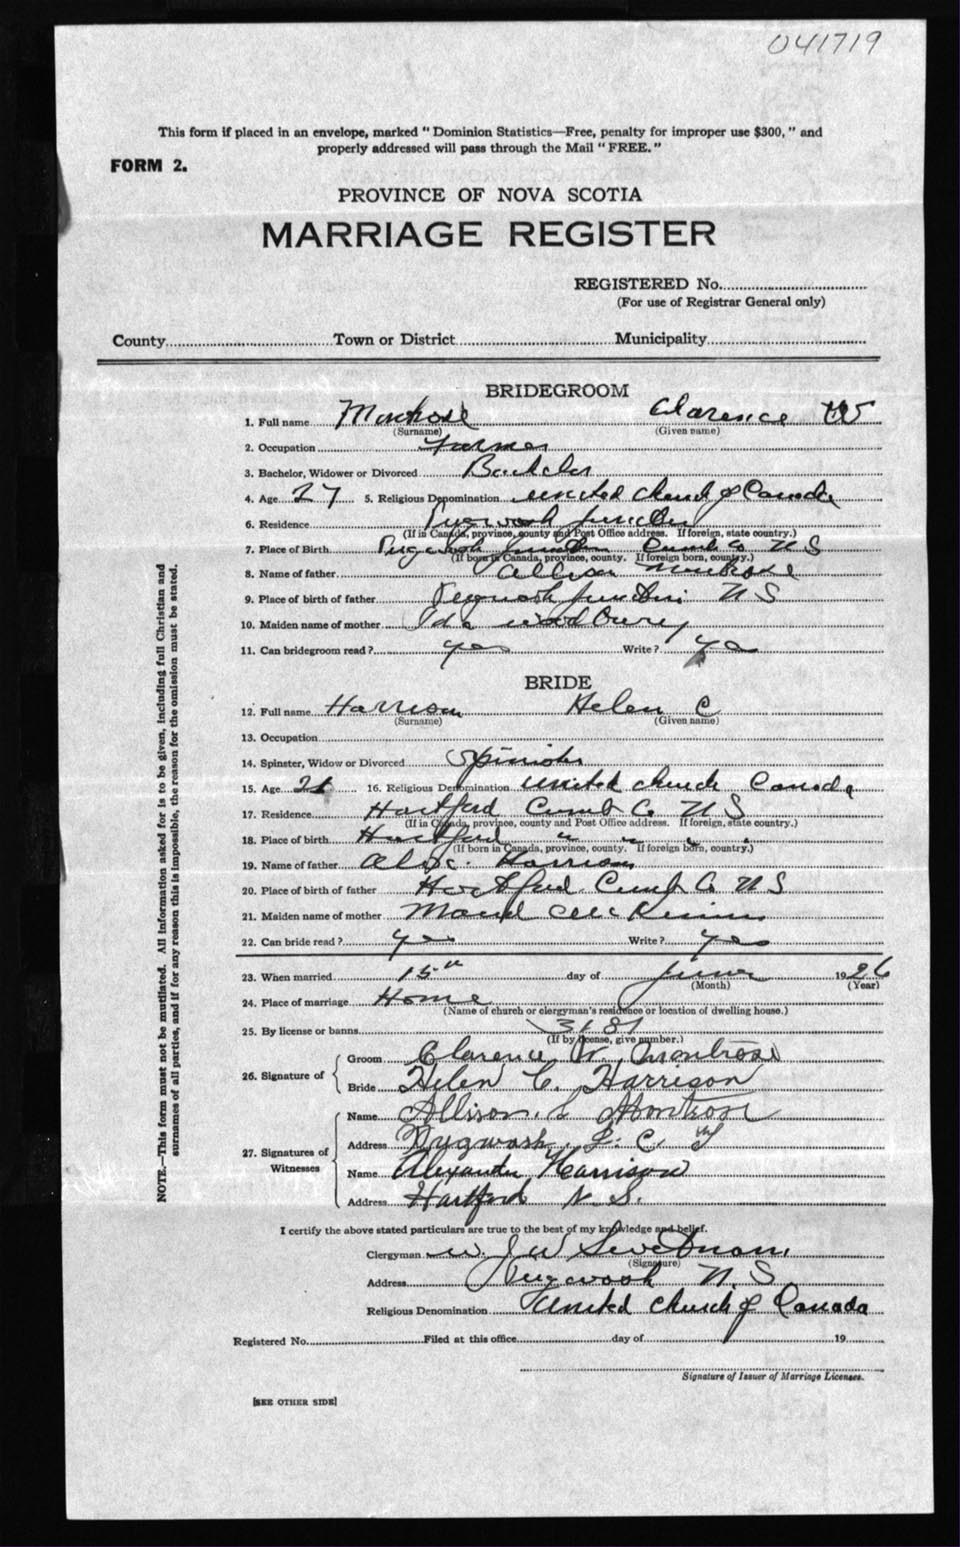 041719
This form if placed in an envelope, marked " Dominion Statistics—Free, penalty for improper use $300, " and
properly addressed will pass through the Mail " FREE. "
FORM 2.
PROVINCE OF NOVA SCOTIA
MARRIAGE REGISTER
REGISTERED No.
(For use of Registrar General only)
County Town or District Municipality
BRIDEGROOM
1. Full name Montrose Clarence W
(Surname) (Given name)
2. Occupation Farmer
3. Bachelor, Widower or Divorced Bachelor
4. Age 27 5. Religious Denomination United Church of Canada
6. Residence Pugwash Junction
(If in Canada, province, county and Post Office address. If foreign, state country.)
7. Place of Birth Pugwash Junction Cumb Co N S
(If born in Canada, province, county. If foreign born, country.)
8. Name of father Allison Montrose
9. Place of birth of father Pugwash Junction N S
10. Maiden name of mother Ida Woodbury
11. Can bridegroom read? yes Write? yes
BRIDE
12. Full name Harrison Helen C
(Surname) (Given name)
13. Occupation
14. Spinster, Widow or Divorced Spinster
15. Age 16. Religious Denomination United Church Canada
17. Residence Hartford Cumb Co N S
(If in Canada, province, county and Post Office address. If foreign, state country.)
18. Place of birth Hartford " " " "
(If born in Canada, province, county. If foreign born, country.)
19. Name of father Alex. Harrison
20. Place of birth of father Hartford Cumb Co N S
21. Maiden name of mother Maud
22. Can bride read? yes Write? yes
23. When married 15th day of June 1926
(Month) (Year)
24. Place of marriage Home
(Name of church or clergyman's residence or location of dwelling house.)
25. By license or banns 3181
(If by license, give number.)
26. Signature of
Groom Clarence W. Montrose
Bride Helen C. Harrison
27. Signatures of Witnesses
Name Allison. L Montrose
Address Pugwash, J. C.
Name Alexander Harrison
Address Hartford N. S.
I certify the above stated particulars are true to the best of my knowledge and belief.
Clergyman W. J W Swetnam.
(Signature)
Address Pugwash N. S
Religious Denomination United Church of Canada
Registered No. Filed at this office day of 19
Signature of Issuer of Marriage Licenses.
[SEE OTHER SIDE]
NOTE.—This form must not be mutilated. All information asked for is to be given, including full Christian and
surnames of all parties, and if for any reason this is impossible, the reason for the omission must be stated.